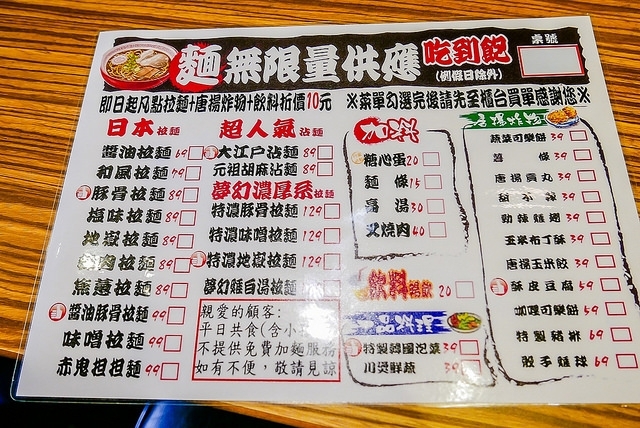 麵無限量供應 吃到飽
(例假日除外)
桌號
即日起凡點拉麵+唐揚炸物+飲料折價10元 ※菜單勾選完後請先至櫃台買單感謝您※
日本拉麵
醬油拉麵 69
和風拉麵 79
豚骨拉麵 89
塩味拉麵 89
地獄拉麵 89
拉麵 89
拉麵 89
醬油豚骨拉麵 99
味噌拉麵 99
赤鬼担担麵 99
超人氣沾麵
大江戶沾麵 89
元祖胡麻沾麵 89
夢幻濃厚系拉麵
特濃豚骨拉麵 129
特濃味噌拉麵 129
特濃地獄拉麵 129
夢幻雞白湯拉麵
親愛的顧客:
平日共食(含小
不提供免費加麵服務
如有不便,敬請見諒
加料
糖心蛋 20
麵條 15
高湯 30
叉燒肉 40
飲料暢飲 20
特製韓國泡菜 39
川燙鮮蔬 39
蔬菜可樂餅 39
條 39
唐揚貢丸 39
甜不辣 39
勁辣雞翅 39
玉米布丁酥 39
唐揚玉米餃 39
酥皮豆腐 59
咖哩可樂餅 59
特製豬排 69
骰子雞球 69